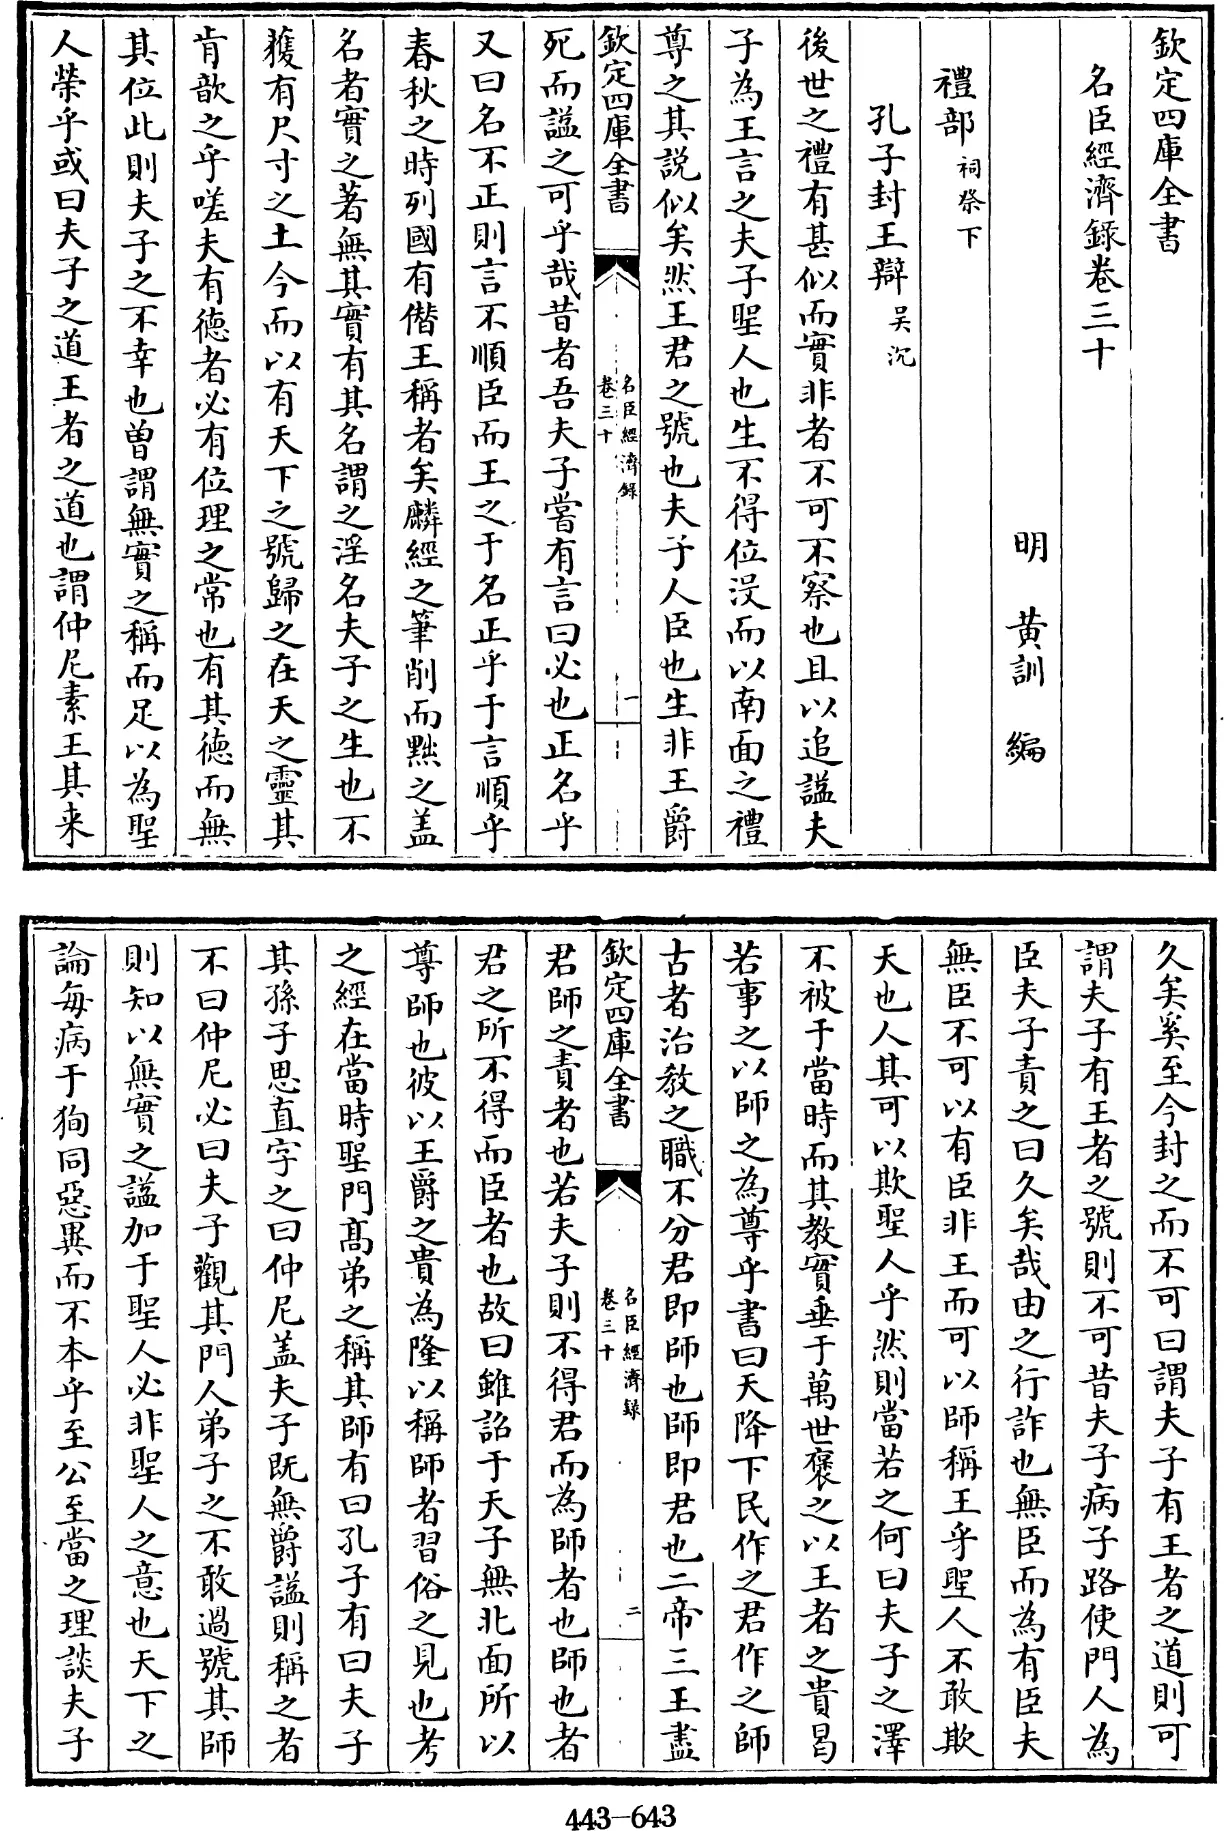 欽定四庫全書
名臣經濟録卷三十
明 黄訓 編
禮部祠祭下
孔子封王辯吴沉
後世之禮有甚似而實非者不可不察也且以追諡夫
子為王言之夫子聖人也生不得位没而以南面之禮
尊之其説似矣然王君之號也夫子人臣也生非王爵
欽定四庫全書
名臣經濟録
卷三十
一
死而諡之可乎哉昔者吾夫子嘗有言曰必也正名乎
又曰名不正則言不順臣而王之于名正乎于言順乎
春秋之時列國有僭王稱者矣麟經之筆削而黜之盖
名者實之著無其實有其名謂之淫名夫子之生也不
獲有尺寸之土今而以有天下之號歸之在天之靈其
肯歆之乎嗟夫有徳者必有位理之常也有其徳而無
其位此則夫子之不幸也曾謂無實之稱而足以為聖
人榮乎或曰夫子之道王者之道也謂仲尼素王其来
久矣奚至今封之而不可曰謂夫子有王者之道則可
謂夫子有王者之號則不可昔夫子病子路使門人為
臣夫子責之曰久矣哉由之行詐也無臣而為有臣夫
無臣不可以有臣非王而可以師稱王乎聖人不敢欺
天也人其可以欺聖人乎然則當若之何曰夫子之澤
不被于當時而其教實垂于萬世褒之以王者之貴曷
若事之以師之為尊乎書曰天降下民作之君作之師
古者治教之職不分君即師也師即君也二帝三王盡
欽定四庫全書
名臣經濟録
卷三十
二
君師之責者也若夫子則不得君而為師者也師也者
君之所不得而臣者也故曰雖詔于天子無北面所以
尊師也彼以王爵之貴為隆以稱師者習俗之見也考
之經在當時聖門髙弟之稱其師有曰孔子有曰夫子
其孫子思直字之曰仲尼盖夫子既無爵諡則稱之者
不曰仲尼必曰夫子觀其門人弟子之不敢過號其師
則知以無實之諡加于聖人必非聖人之意也天下之
論每病于狥同惡異而不本乎至公至當之理談夫子
443-643